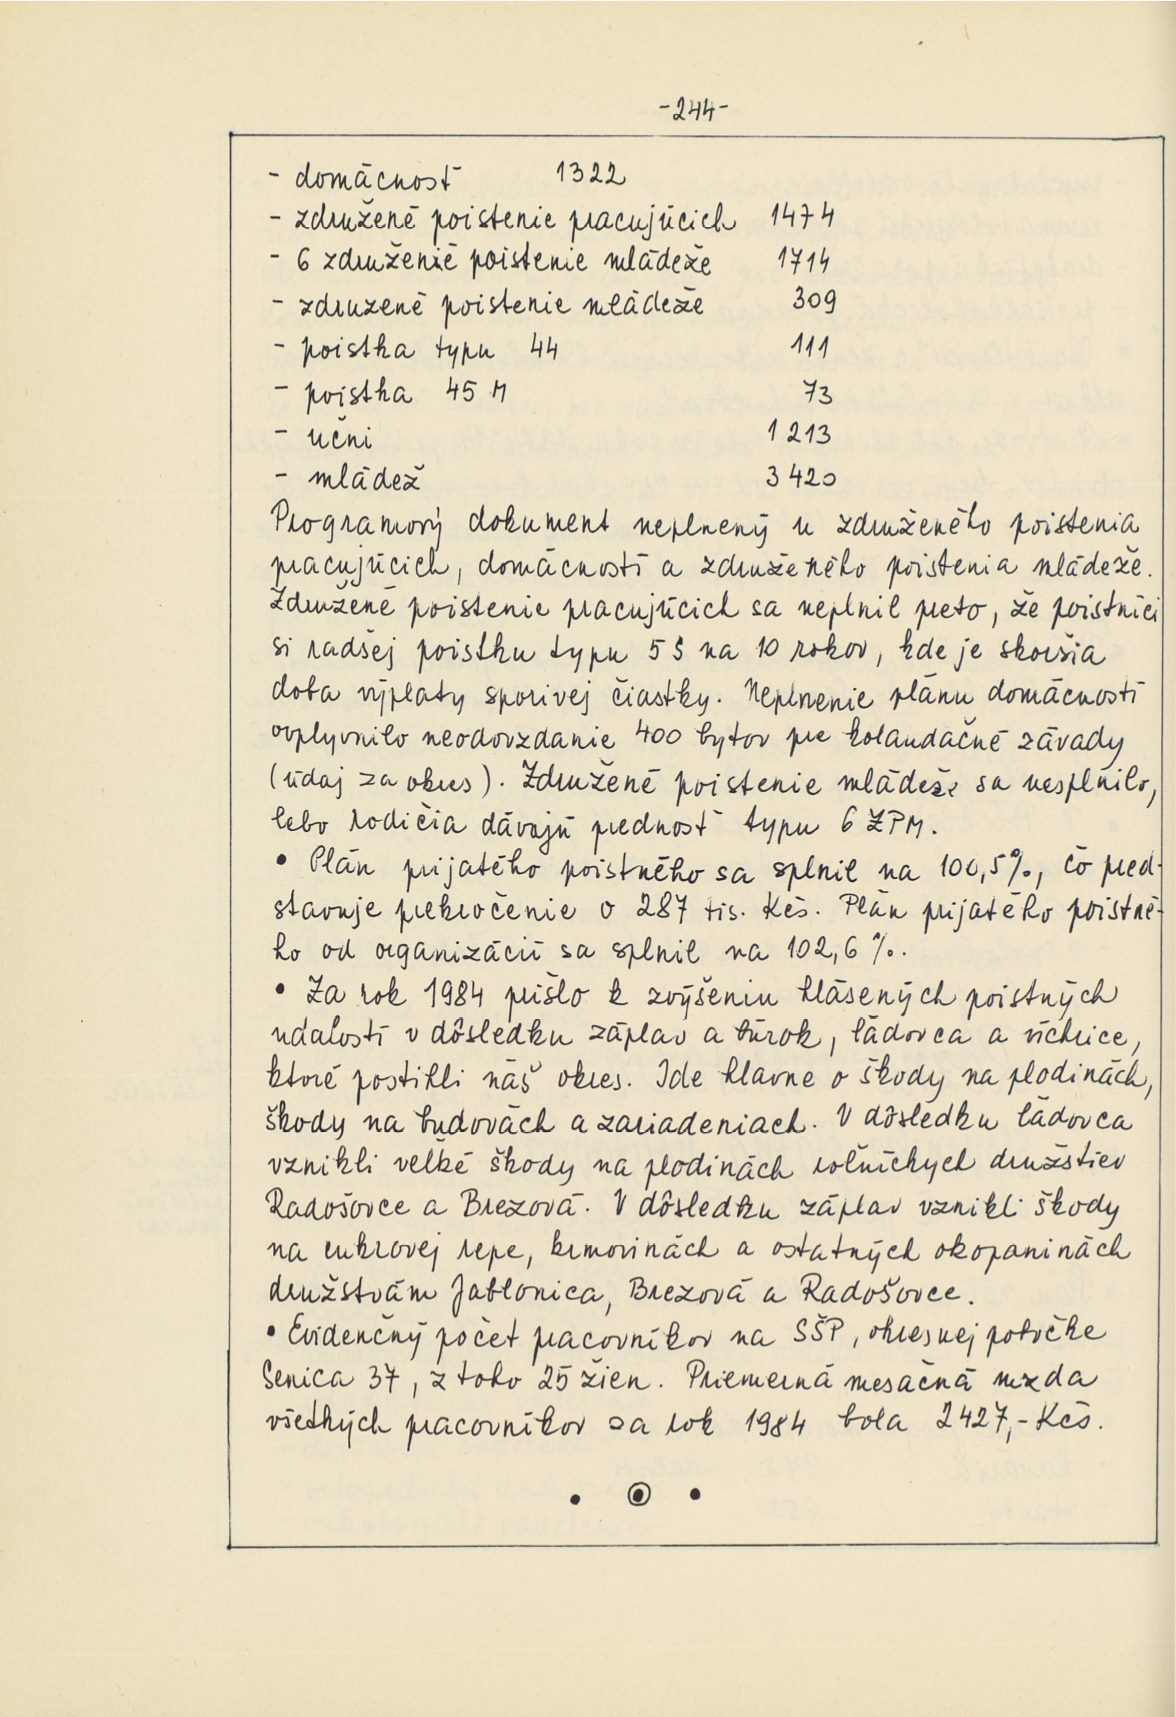 -244-
- domácnosť 1322
- združené poistenie pracujúcich 1474
- 6 združenié poistenie mládeže 1714
- združené poistenie mládeže 309
- poistka typu 44 111
- poistka 45 M 73
- učni 1213
- mládež 3420
Programový dokument neplnený u združeného poistenia
pracujúcich, domácností a združeného poistenia mládeže.
Združené poistenie pracujúcich sa neplnil preto, že poistníci
si radšej poistku typu 5 S na 10 rokov, kde je skoršia
doba výplaty sporivej čiastky. Neplnenie plánu domácností
ovplyvnilo neodovzdanie 400 bytov pre kolaudačné závady
(údaj za okres). Združené poistenie mládeže sa nesplnilo,
lebo rodičia dávajú prednosť typu 6 ZPM.
• Plán prijatého poistného sa splnil na 100,5%, čo pred-
stavuje prekročenie o 287 tis. Kčs. Plán prijatého poistné-
ho od organizácií sa splnil na 102,6 %.
• Za rok 1984 prišlo k zvýšeniu hlásených poistných
udalostí v dôsledku záplav a búrok, ľadovca a víchrice,
ktoré postihli náš okres. Ide hlavne o škody na plodinách,
škody na budovách a zariadeniach. V dôsledku ľadovca
vznikli veľké škody na plodinách roľníckych družstiev
Radošovce a Brezová. V dôsledku záplav vznikli škody
na cukrovej repe, krmovinách a ostatných okopaninách
družstvám Jablonica, Brezová a Radošovce.
• Evidenčný počet pracovníkov na SŠP, okresnej pobočke
Senica 37, z toho 25 žien. Priemerná mesačná mzda
všetkých pracovníkov za rok 1984 bola 2427,- Kčs.